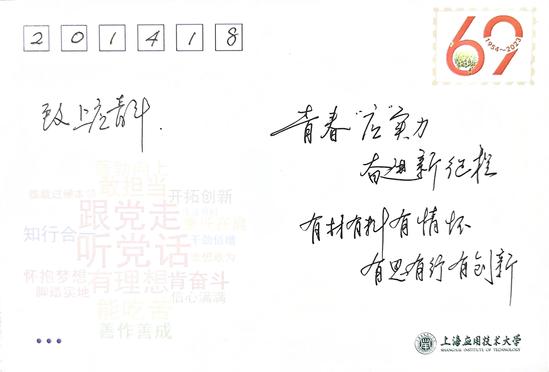 201418
69
1954~2023
致上应青年.
青春"应"实力
奋进新征程
有材有料有情怀
有思有行有创新
敢担当
开拓创新
跟党走
知行合一
听党话
干劲倍增
怀抱梦想
有理想
肯奋斗
脚踏实地
信心满满
能吃苦
善作善成
上海应用技术大学
SHANGHAI INSTITUTE OF TECHNOLOGY